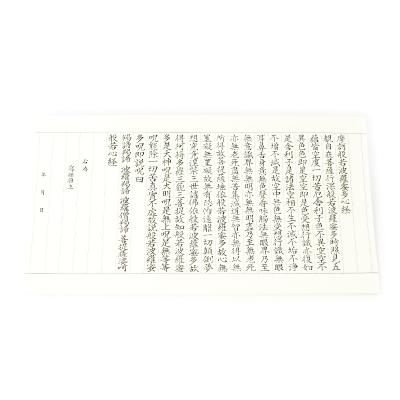 摩訶般若波羅蜜多心経
観自在菩薩行深般若波羅蜜多時照見五
蘊皆空度一切苦厄舎利子色不異空空不
異色色即是空空即是色受想行識亦復如
是舎利子是諸法空相不生不滅不垢不浄
不増不減是故空中無色無受想行識無眼
耳鼻舌身意無色聲香味觸法無眼界乃至
無意識界無無明亦無無明盡乃至無老死
亦無老死盡無苦集滅道無智亦無得以無
所得故菩提薩埵依般若波羅蜜多故心無
罣礙無罣礙故無有恐怖遠離一切顛倒夢
想究竟涅槃三世諸佛依般若波羅蜜多故
得阿耨多羅三藐三菩提故知般若波羅蜜
多是大神呪是大明呪是無上呪是無等等
呪能除一切苦真実不虚故説般若波羅蜜
多呪即説呪曰
羯諦羯諦 波羅羯諦 波羅僧羯諦 菩提薩婆訶
般若心経
右為
年 月 日